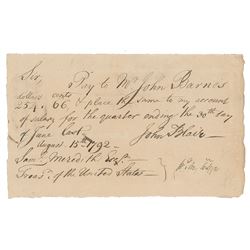 Sir,
Pay to Mr John Barnes
dollars cents
254.66 & place the same to my account
of salary for the quarter ending the 30th day
of June last
John Blair
August 15th 1792
Saml Meredith Esqr.
Treasr of the United States